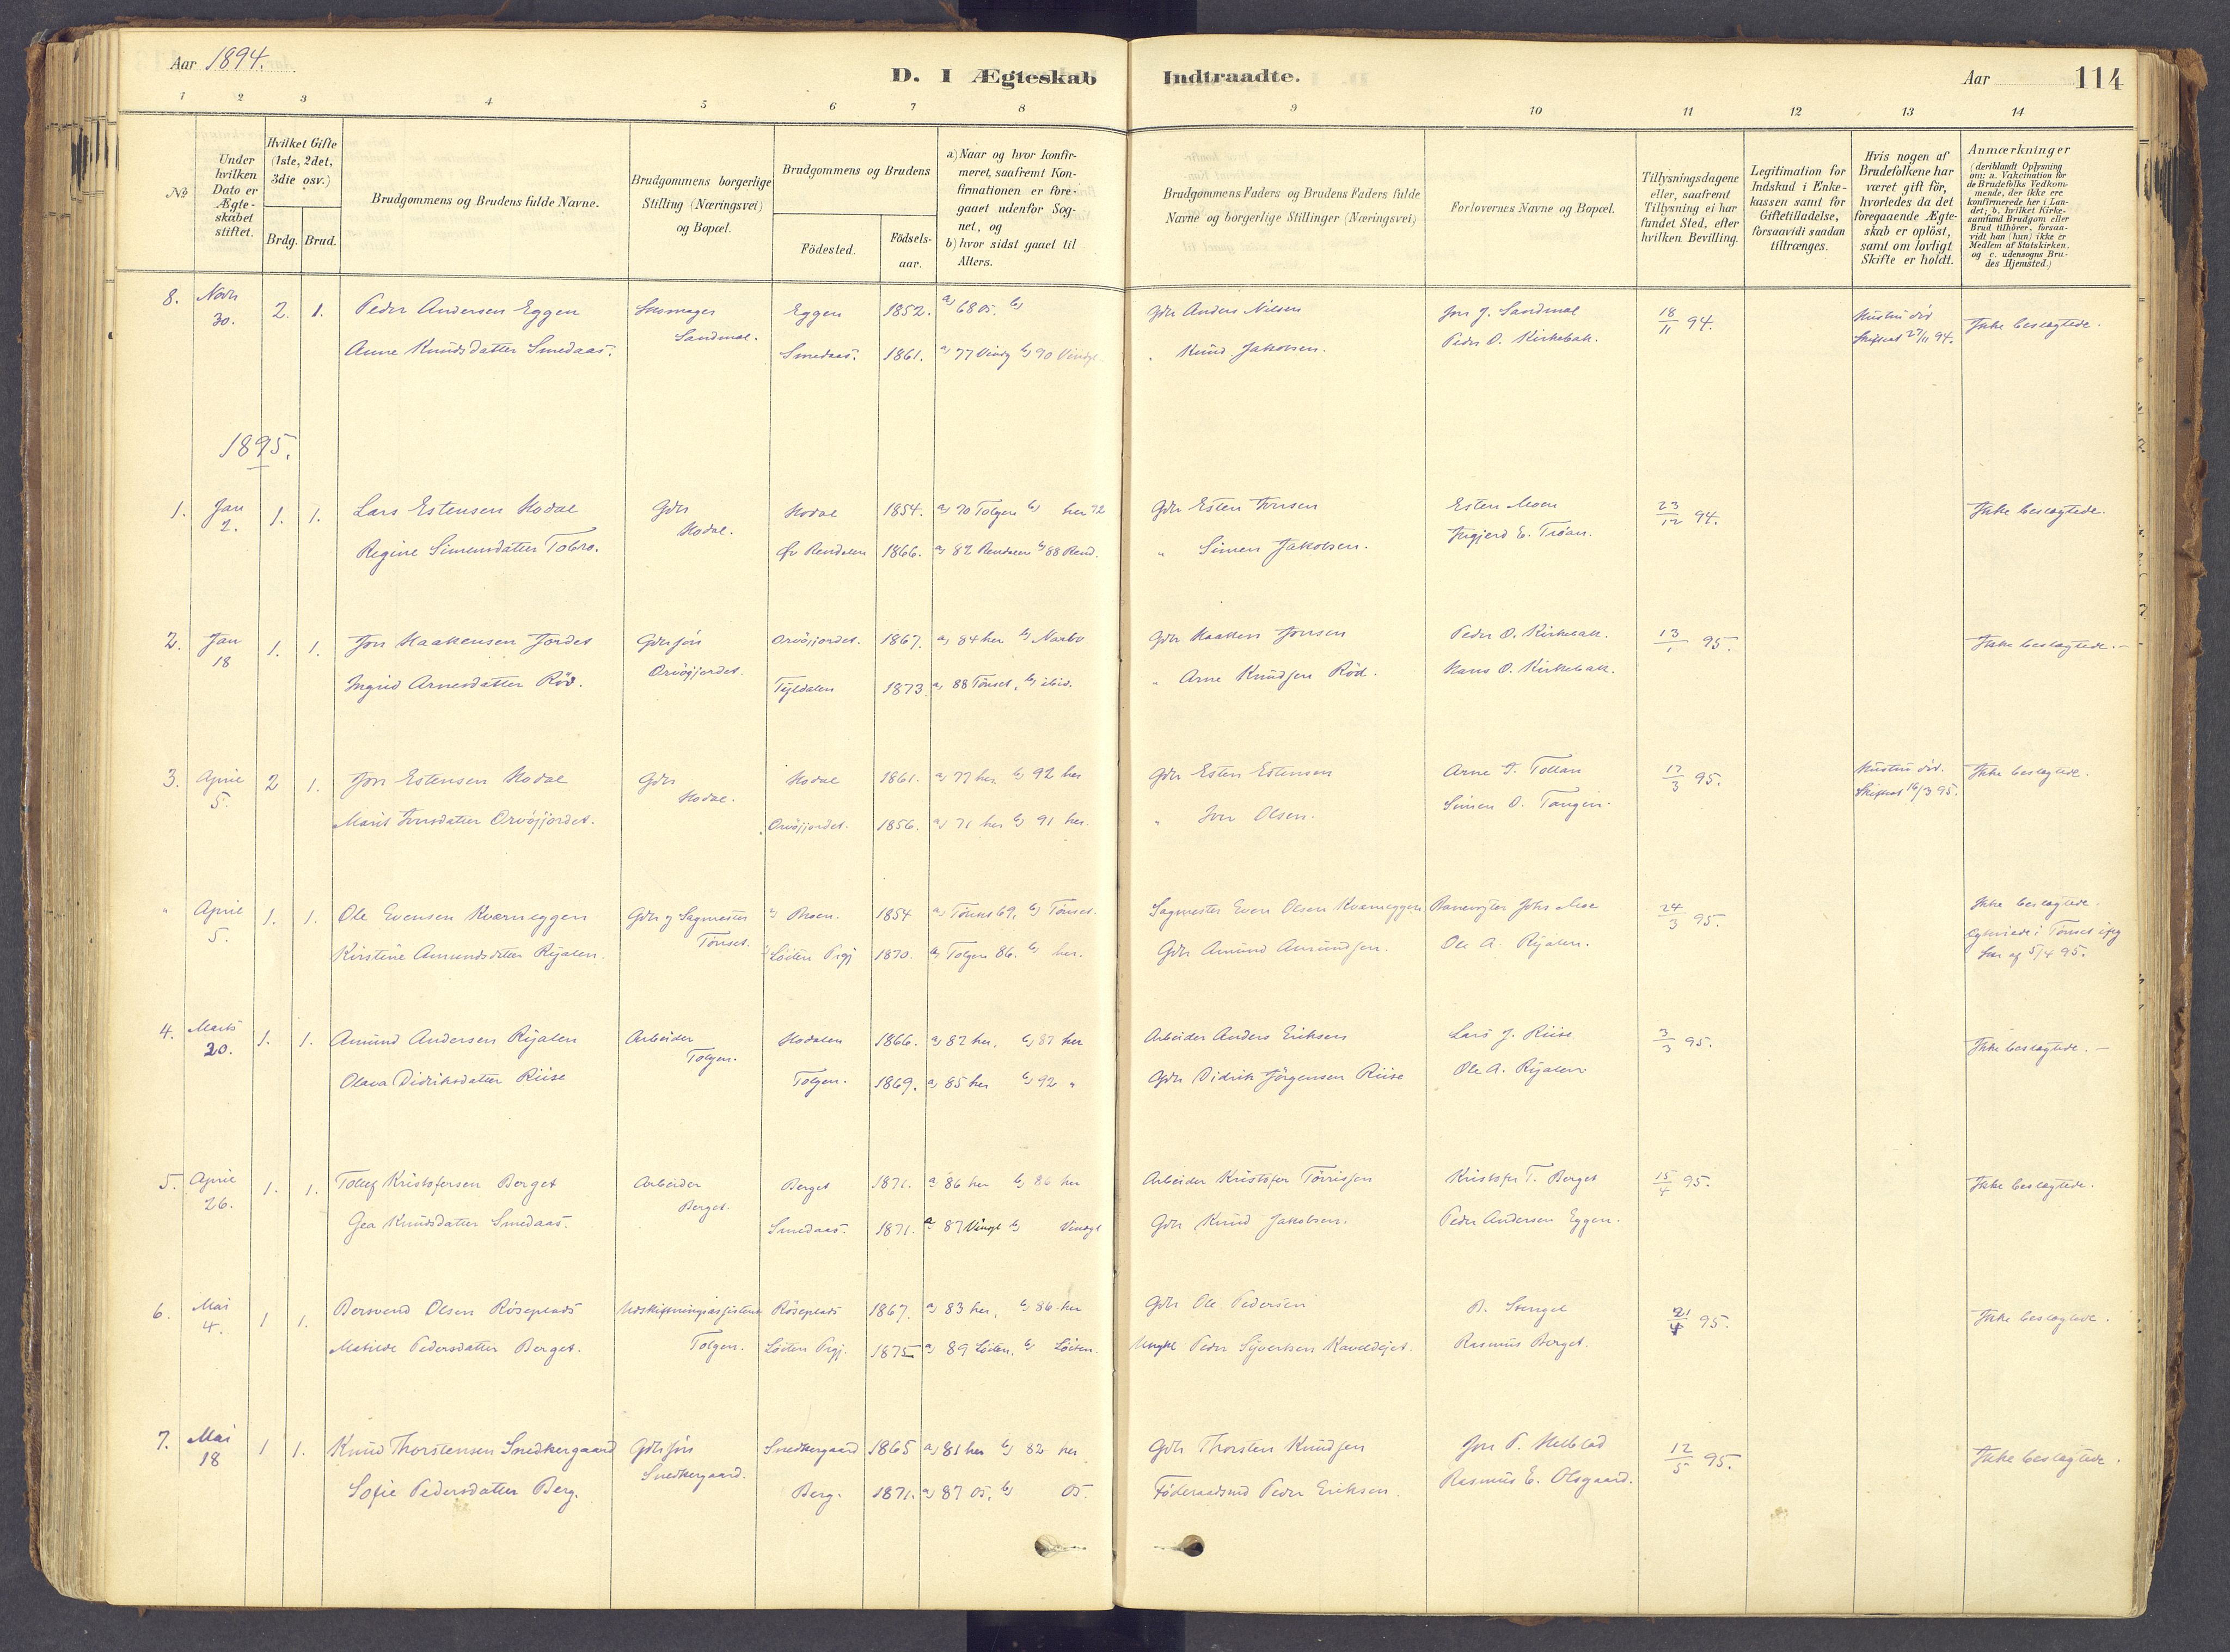 Aar 1894.
D. I Ægteskab Indtraadte.
Aar 114
1 2 3 4 5 6 7 8 9 10 11 12 13 14
№
Under hvilken Dato er Ægteskabet stiftet.
Hvilket Gifte (1ste, 2det, 3die osv.)
Brdg. Brud.
Brudgommens og Brudens fulde Navne.
Brudgommens borgerlige Stilling (Næringsvei) og Bopæl.
Brudgommens og Brudens
Födested. Födselsaar.
a) Naar og hvor konfirmeret, saafremt Konfirmationen er foregaaet udenfor Sognet, og
b) hvor sidst gaaet til Alters.
Brudgommens Faders og Brudens Faders fulde Navne og borgerlige Stillinger (Næringsvei)
Forlovernes Navne og Bopæl.
Tillysningsdagene eller, saafremt Tillysning ei har fundet Sted, efter hvilken Bevilling.
Legitimation for Indskud i Enkekassen samt for Giftetilladelse, forsaavidt saadan tiltrænges.
Hvis nogen af Brudefolkene har været gift för, hvorledes da det foregaaende Ægteskab er oplöst, samt om lovligt Skifte er holdt.
Anmærkninger (deriblandt Oplysning om: a. Vakcination for de Brudefolks Vedkommende, der ikke ere konfirmerede her i Landet; b. hvilket Kirkesamfund Brudgom eller Brud tilhörer, forsaavidt han (hun) ikke er Medlem af Statskirken, og c. udensogns Brudes Hjemsted.)
8. Novbr 30. 2. 1. Peder Andersen Eggen Skomager Sandmoe. Eggen 1852. a) 68 Os. b) Gdr Anders Nilsen Jon J. Sandmoe 18/11 94. Hustru död Skiftet 27/11 94. Ikke beslægtede.
Anne Knudsdatter Smedaas. Smedaas. 1861. a) 77 Vingl b) 90 Vingl. " Knud Jakobsen. Peder O. Kirkebak.
1895.
1. Jan 2. 1. 1. Lars Estensen Hodal Gdr Hodal. Hodal 1854. a) 70 Tolgen b) her 72 Gdr Esten Esten Moen 23/12 94. Ikke beslægtede.
Regine Simensdatter Tobro. Öv Rendalen 1866. a) 82 Rendalen b) 88 Rend. " Simen Jakobsen. Ingjerd E. Tröan.
2. Jan 18 1. 1. Jon Haakensen Jordet Gdrsön Orvöjjordet. Orvöjjordet. 1867. a) 84 her b) Narbo Gdr Haaken Jonsen Peder O. Kirkebak. 13/1 95. Ikke beslægtede.
Ingrid Arnesdatter Röd. Tyldalen 1873. a) 88 Tönset, b) ibid. " Arne Knudsen Röd. Hans O. Kirkebak.
3. April 5. 2 1. Jon Estensen Hodal Gdr Hodal. Hodal 1861. a) 77 her b) 92 her Gdr Esten Estensen Arne T. Tollan 17/3 95. Hustru död. Skiftet 16/3 95. Ikke beslægtede.
Marit Iversdatter Orvöjjordet. Orvöjjordet. 1856. a) 71 her b) 91 her. " Iver Olsen. Simen O. Tangen.
" April 5. 1. 1. Ole Evensen Kværneggen Gdr og Sagmester Tönset. Moen. 1854 a) Tönset 69, b) Tönset. Sagmester Even Olsen Kværneggen Banevogter Johs Moe 24/3 95. Ikke beslægtede.
Kirstine Amundsdatter Rijalen. Löiten Prgj 1870. a) Tolgen 86. b) her. Gdr Amund Amundsen. Ole A. Rijalen. i Tönset af 5/4 95.
4. Marts 20. 1. 1. Amund Andersen Rijalen Arbeider Tolgen. Hodalen 1866. a) 82 her, b) 87 her Arbeider Anders Eriksen Lars J. Riise 3/3 95. Ikke beslægtede.
Olava Didriksdatter Riise Tolgen. 1869. a) 85 her b) 92 " Gdr Didrik Jörgensen Riise Ole A. Rijalen
5. April 26. 1. 1. Tollef Kristofersen Berget Arbeider Berget. Berget 1871. a) 86 her b) 86 her Arbeider Kristofer Törrisen Kristofer T. Berget 15/4 95. Ikke beslægtede.
Gea Knudsdatter Smedaas. Smedaas. 1871. a) 87 Vingl b) Vingl Gdr Knud Jakobsen. Peder Andersen Eggen.
6. Mai 4. 1 1. Bersvend Olsen Röseplads Udskiftningsassistent Tolgen. Röseplads 1867. a) 83 her, b) 86 her Gdr Ole Pedersen B. Stengel 21/4 95. Ikke beslægtede.
Matilde Pedersdatter Berget. Löiten Prgj. 1875 a) 89 Löiten, b) Löiten. Peder Sijvertsen Rasmus Berget.
7. Mai 18 1 1. Knud Thorstensen Snedkergaard Gdrsön Snedkergaard. Snedkergaard 1865 a) 81 her b) 82 her Gdr Thorsten Knudsen Jon P. Helblad 12/5 95. Ikke beslægtede.
Sofie Pedersdatter Berg. Berg. 1871. a) 87 Os, b) Os. Föderaadsmd Peder Eriksen. Rasmus E. Olsgaard.